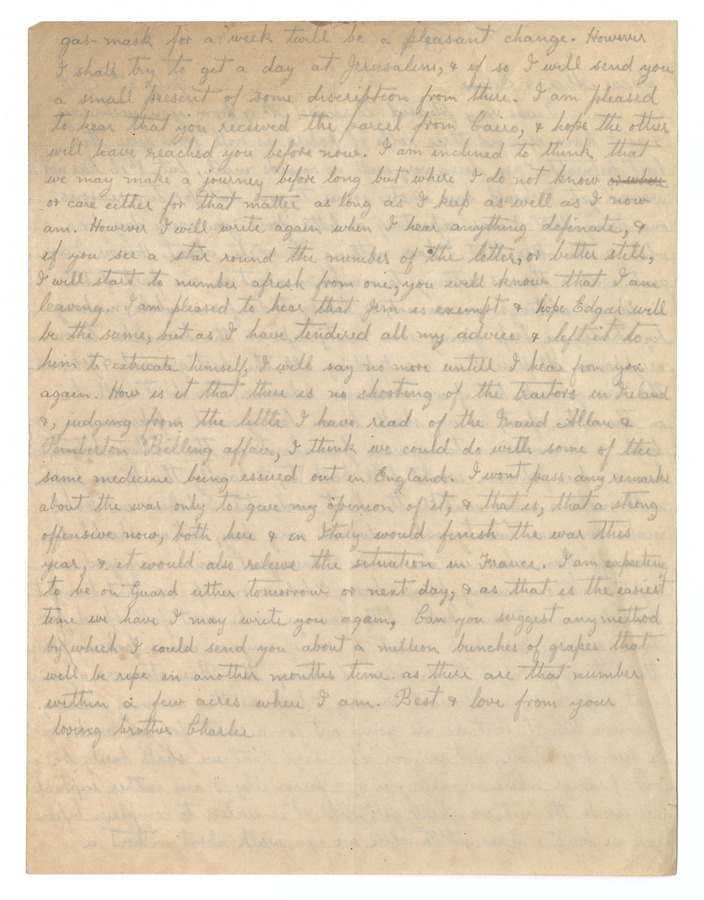 gas-mask for a week twill be a pleasant change. However
I shall try to get a day at Jerusalem, & if so I will send you
a small present of some discription from there. I am pleased
to hear that you received the parcel from Cairo, & hope the other
will have reached you before now. I am inclined to think that
we may make a journey before long but where I do not know or where
or care either for that matter as long as I keep as well as I now
am. However I will write again when I hear anything definate, &
if you see a star round the number of the letter, or better still,
I will start to number afresh from one, you will know that I am
leaving. I am pleased to hear that Jim is exempt & hope Edgar will
be the same, but as I have tendered all my advice & left it to
him to extricate himself, I will say no more untill I hear from you
again. How is it that there is no shooting of the traitors in Ireland
&, judging from the little I have read of the Maud Allan &
Pemberton Billing affair, I think we could do with some of the
same medicine being issued out in England. I wont pass any remarks
about the war only to give my opinion of it, & that is, that a strong
offensive now, both here & in Italy would finish the war this
year, & it would also releive the situation in France. I am expecting
to be on Guard either tomorrow or next day, & as that is the easiest
time we have I may write you again. Can you suggest any method
by which I could send you about a million bunches of grapes that
will be ripe in another months time as there are that number
within a few acres where I am. Best & love from your
loving brother Charlie